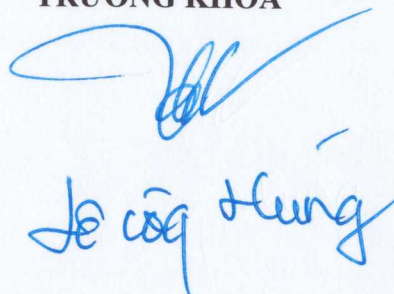 TRƯỞNG KHOA
Lê Công Hùng